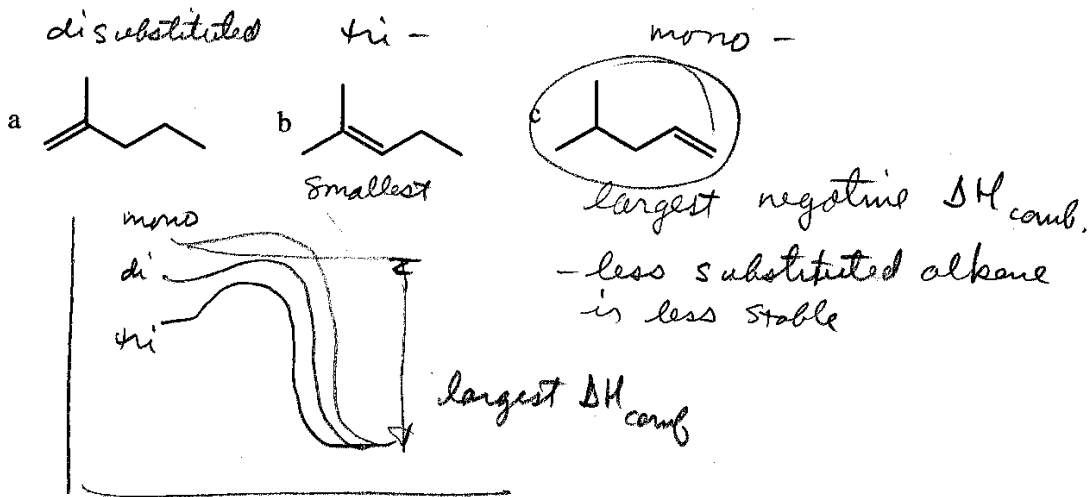 disubstituted tri - mono -
a b c
smallest
largest negative ΔH comb.
mono
di
- less substituted alkene
is less stable
tri
largest ΔH comb